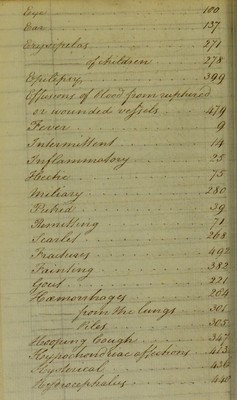 Eye 100
Ear 137
Erysipelas 271
of children 278
Epilepsy 399
Effusions of blood from ruptured
or wounded vessels 479
Fever 9
Intermittent 14
Inflammatory 25
Hectic 75
Miliary 280
Putrid 39
Remitting 71
Scarlet 268
Fractures 492
Fainting 382
Gout 221
Hæmorrhages 204
from the lungs 301
Piles 305
Hooping Cough 347
Hypochondriac affections 413
Hysterical 436
Hydrocephalus 440